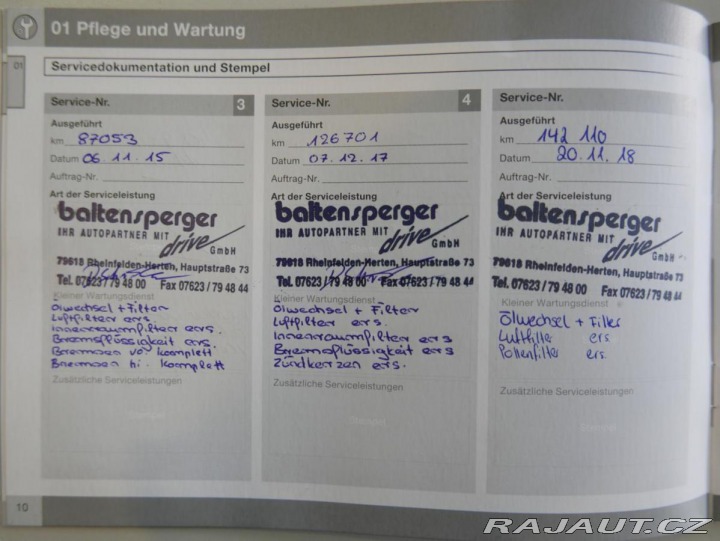 01 Pflege und Wartung
01
Servicedokumentation und Stempel
Service-Nr. 3
Ausgeführt
km 87053
Datum 06.11.15
Auftrag-Nr.
Art der Serviceleistung
baltensperger
IHR AUTOPARTNER MIT drive GmbH
79618 Rheinfelden-Herten, Hauptstraße 73
Tel. 07623/79 48 00 Fax 07623/79 48 44
Kleiner Wartungsdienst
Ölwechsel + Filter
Luftfilter ers.
Innenraumfilter ers.
Bremsflüssigkeit ers.
Bremsen vo komplett
Bremsen hi. komplett
Zusätzliche Serviceleistungen
Stempel
Service-Nr. 4
Ausgeführt
km 126701
Datum 07.12.17
Auftrag-Nr.
Art der Serviceleistung
baltensperger
IHR AUTOPARTNER MIT drive GmbH
79618 Rheinfelden-Herten, Hauptstraße 73
Tel. 07623/79 48 00 Fax 07623/79 48 44
Kleiner Wartungsdienst
Ölwechsel + Filter
Luftfilter ers.
Innenraumfilter ers
Bremsflüssigkeit ers
Zündkerzen ers.
Zusätzliche Serviceleistungen
Stempel
Service-Nr.
Ausgeführt
km 142 110
Datum 20.11.18
Auftrag-Nr.
Art der Serviceleistung
baltensperger
IHR AUTOPARTNER MIT drive GmbH
79618 Rheinfelden-Herten, Hauptstraße 73
Tel. 07623/79 48 00 Fax 07623/79 48 44
Kleiner Wartungsdienst
Ölwechsel + Filter
Luftfilter ers.
Pollenfilter ers.
Zusätzliche Serviceleistungen
Stempel
10
RAJAUT.CZ